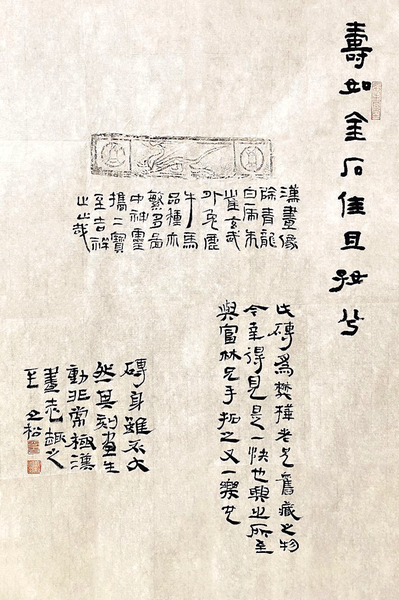 壽如金石佳且好兮
漢畫像
除青龍
白虎朱
雀玄武
外兔鹿
牛馬
品種亦
繁多啚
中神靈
攜二寶
至吉祥
止止哉
此磚為樊樺老兄舊藏之物
今幸得見是一快也興之所至
與富林兄手拓之又一樂也
磚身雖不大
然其刻畫生
動非常極漢
畫志趣之
至 之松